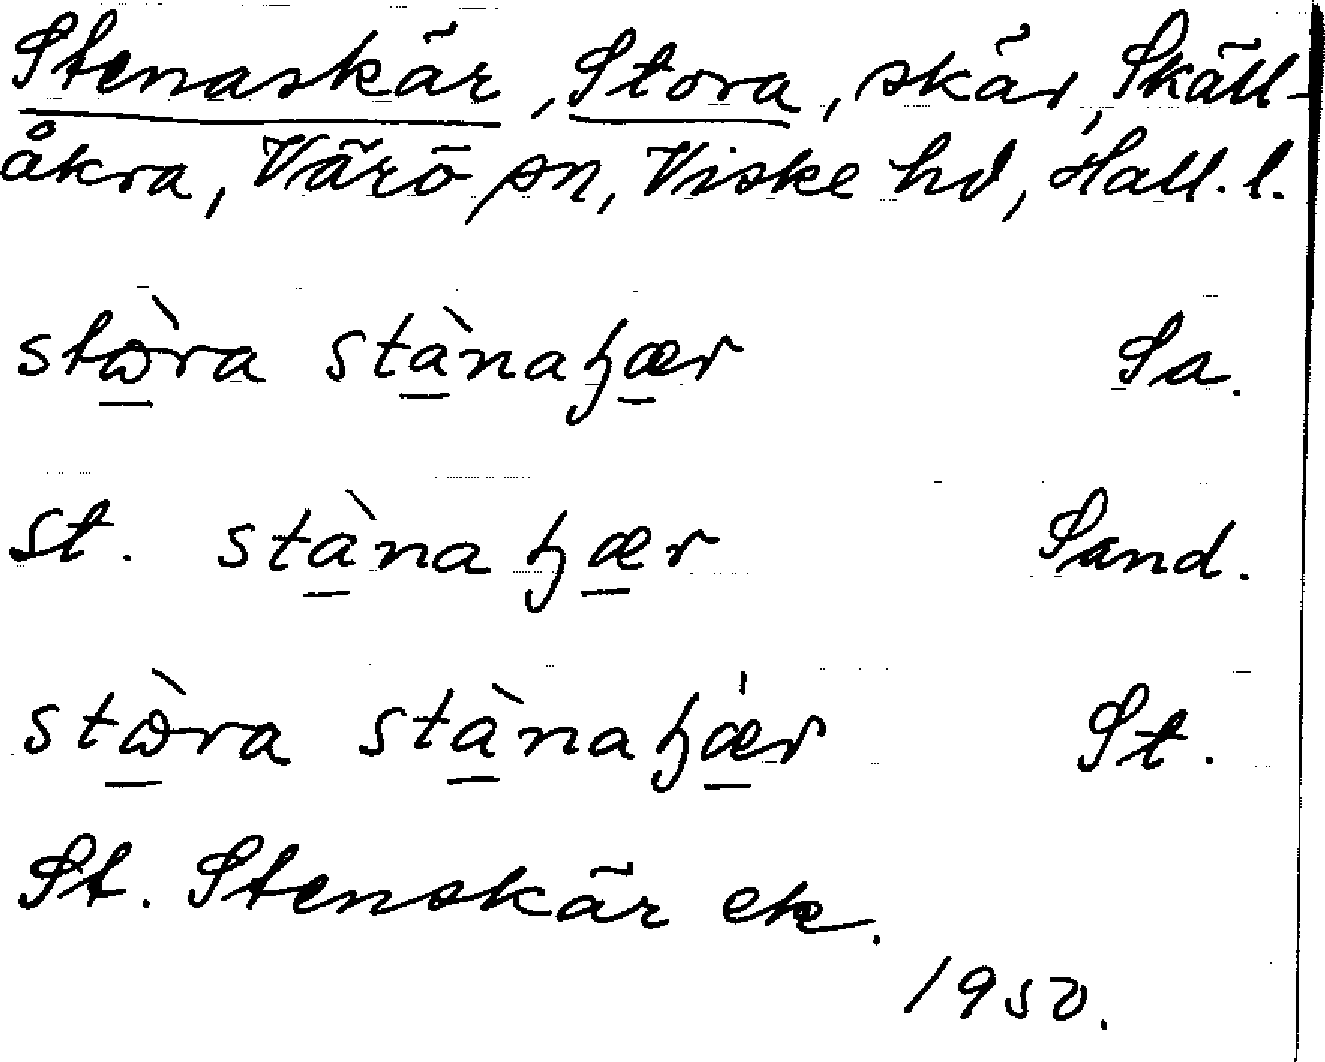 Stenaskär, Stora, skär, Skäll-
åkra, Värö sn, Viske hd, Hall. l.
stɷ̀ra stànaʓær Sa.
st. stànaʓær Sand.
stɷ̀ra stànaʓǽr St.
St. Stenskär ek.
1950.